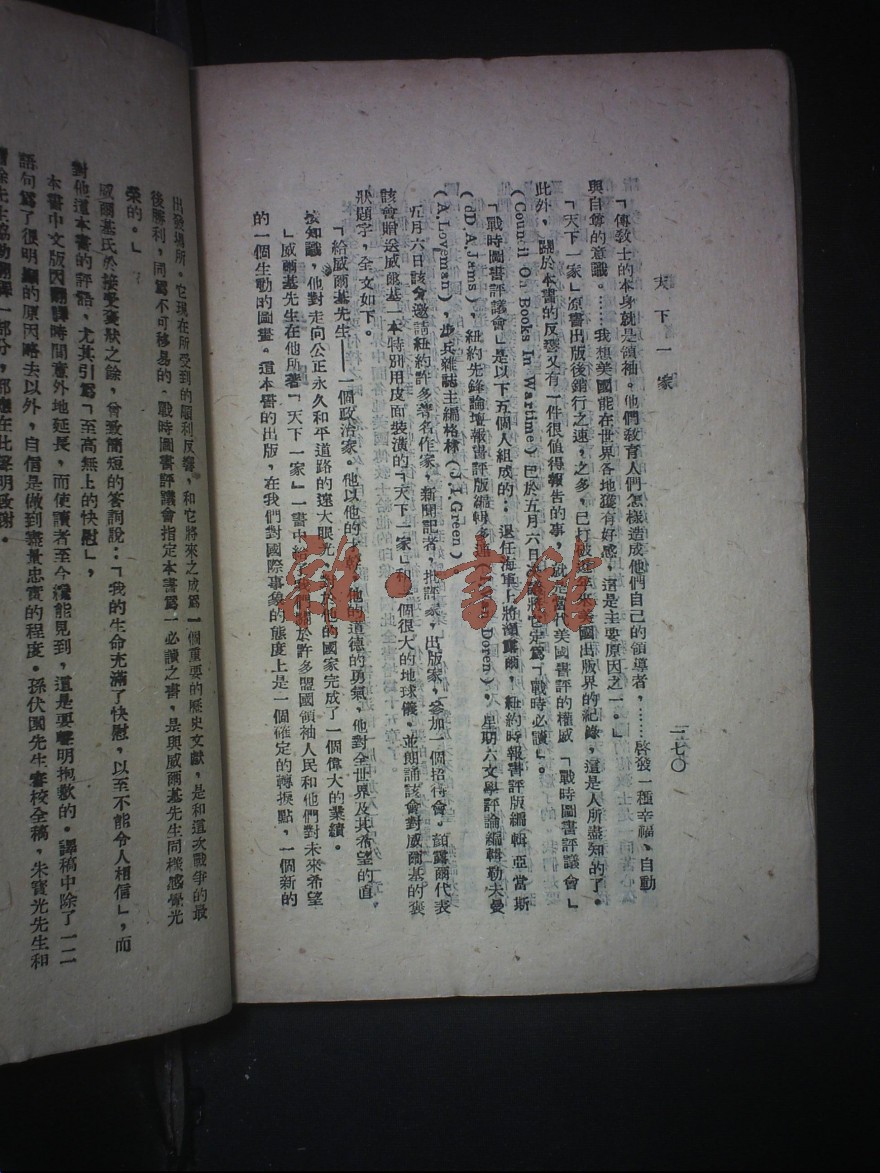 天下一家
一七〇
「傳教士的本身就是領袖。他們教育人們怎樣造成他們自己的領導者，……啓發一種幸福、自動
與自奮的意識。……我想美國能在世界各地獲有好感，這是主要原因之一。」
「天下一家」原書出版後銷行之速，之多，已打破近年來美國出版界的紀錄，這是人所盡知的了。
此外，關於本書的反響又有一件很值得報告的事，就是當代美國書評的權威「戰時圖書評議會」
(Council On Books In Wartime) 已於五月六日 將它定爲「戰時必讀」。
「戰時圖書評議會」是以下五個人組成的：退任海軍上將顏露爾，紐約時報書評版編輯亞當斯
(dD.A.Jams)，紐約先鋒論壇報書評版編輯多 Doren)，星期六文學評論編輯勒夫曼
(A.Loveman)，步兵雜誌主編格林 (J.I.Green)
五月六日該會邀請紐約許多著名作家，新聞記者，批評家，出版家，參加一個招待會。顏露爾代表
該會贈送威爾基一本特別用皮面裝潢的「天下一家」和一個很大的地球儀。並朗誦該會對威爾基的褒
狀題字，全文如下。
「給威爾基先生——一個政治家。他以他的 他的道德的勇氣，他對全世界及其希望的直
接知識，他對走向公正永久和平道路的遠大眼光， 於他的國家完成了一個偉大的業績。
「威爾基先生在他所著「天下一家」一書中給 我們 於許多盟國領袖人民和他們對未來希望
的一個生動的圖畫。這本書的出版，在我們對國際事象的態度上是一個確定的轉捩點，一個新的
出發場所。它現在所受到的順利反響，和它將來之成爲一個重要的歷史文獻，是和這次戰爭的最
後勝利，同爲不可移易的。戰時圖書評議會指定本書爲一必讀之書，是與威爾基先生同樣感覺光
榮的。」
威爾基氏於接受褒狀之餘，曾致簡短的答詞說：「我的生命充滿了快慰，以至不能令人相信」，而
對他這本書的評語，尤其引爲「至高無上的快慰」，
本書中文版因翻譯時間意外地延長，而使讀者至今纔能見到，這是要聲明抱歉的。譯稿中除了一二
語句爲了很明顯的原因略去以外，自信是做到審量忠實的程度。孫伏園先生審校全稿，朱寶光先生和
徐先生協助翻譯一部分，都應在此聲明致謝。